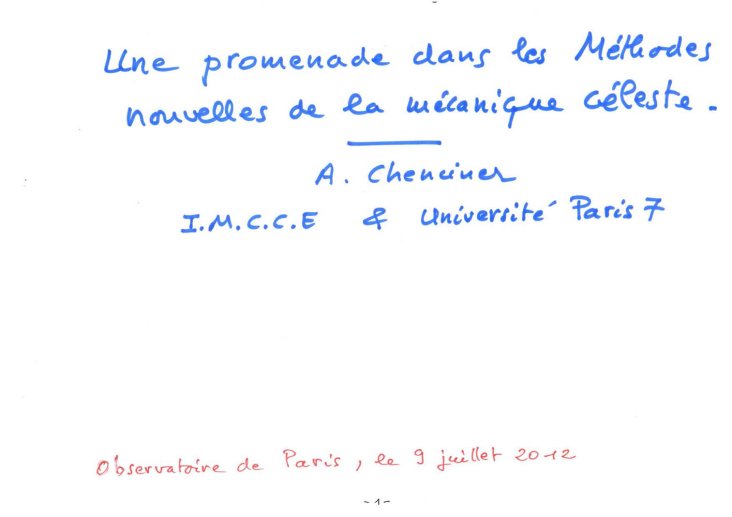 Une promenade dans les Méthodes
nouvelles de la mécanique céleste.
A. Chenciner
I.M.C.C.E & Université Paris 7
Observatoire de Paris, le 9 juillet 2012
-1-